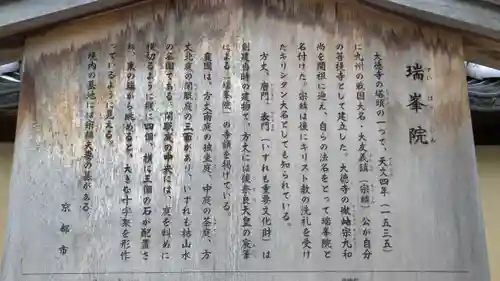 瑞峯院
ずいほういん
大徳寺の塔頭の一つで、天文四年(一五三五)
に九州の戦国大名・大友義鎮(宗麟)公が自分
の菩提寺として建立した。大徳寺の徹岫宗九和
尚を開祖に迎え、自らの法名をとって瑞峯院と
名付けた。宗麟は後にキリスト教の洗礼を受け
たキリシタン大名としても知られている。
方丈、唐門、表門(いずれも重要文化財)は
創建当時の建物で、方丈には後奈良天皇の宸筆
による「瑞峯院」の寺額を掲げている。
庭園は、方丈南庭の独坐庭、中庭の茶庭、方
丈北庭の閑眠庭の三面があり、いずれも枯山水
の名園である。閑眠庭の中央には、庭を斜めに
横切るように縦に四個、横に三個の石が配置さ
れ、東の端から眺めると、大きな十字架を形作
っているように見える。
境内の墓地には宗麟夫妻の墓がある。
京都市